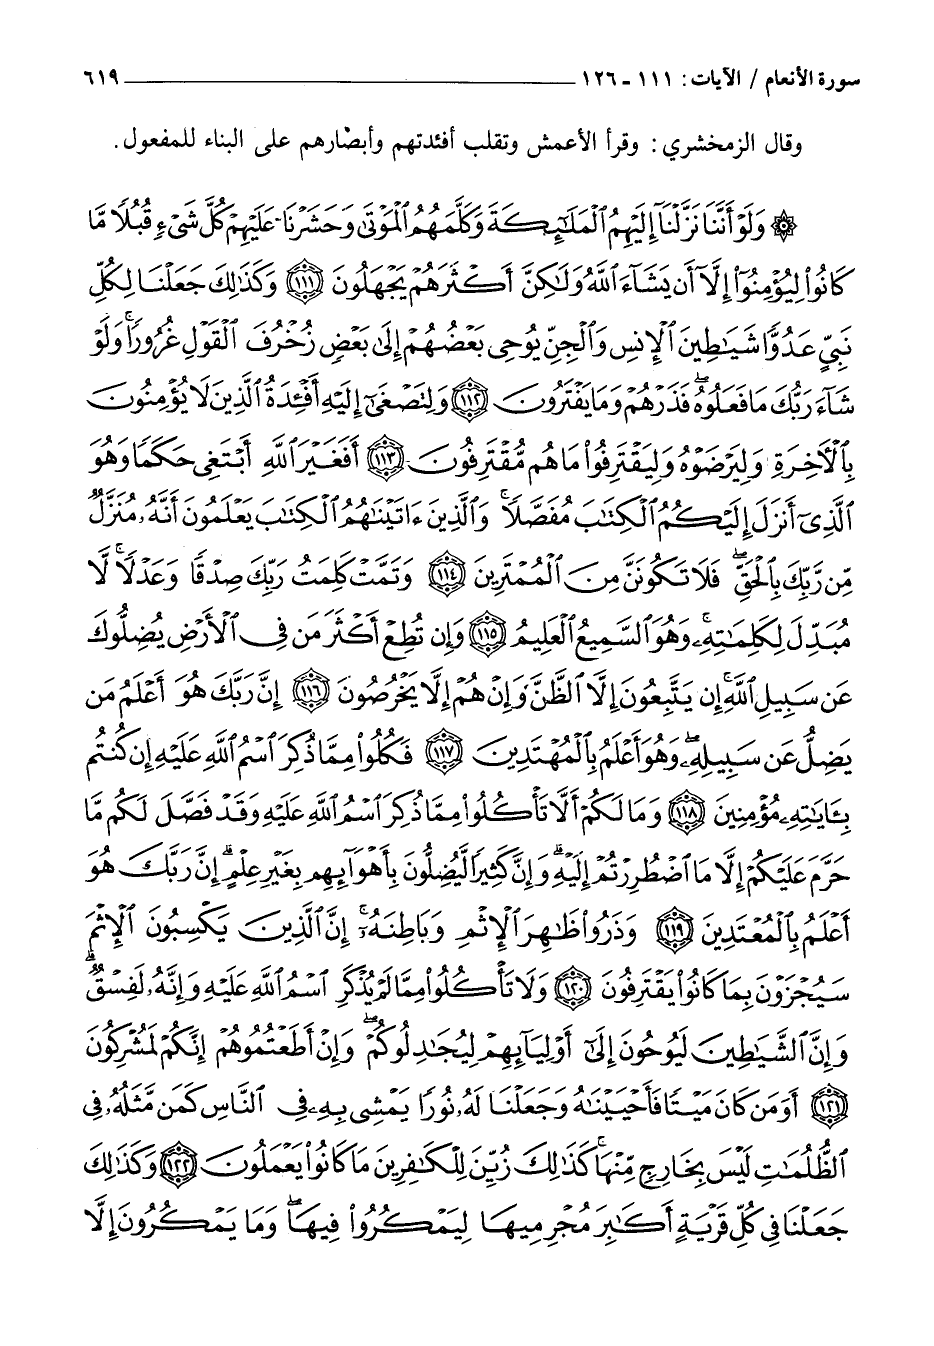 سورة الأنعام / الآيات: ١١١ - ١٢٦ ٦١٩
وقال الزمخشري: وقرأ الأعمش وتقلب أفئدتهم وأبصارهم على البناء للمفعول.
۞ وَلَوْ أَنَّنَا نَزَّلْنَآ إِلَيْهِمُ ٱلْمَلَٰٓئِكَةَ وَكَلَّمَهُمُ ٱلْمَوْتَىٰ وَحَشَرْنَا عَلَيْهِمْ كُلَّ شَىْءٍ قُبُلًا مَّا
كَانُوا۟ لِيُؤْمِنُوٓا۟ إِلَّآ أَن يَشَآءَ ٱللَّهُ وَلَٰكِنَّ أَكْثَرَهُمْ يَجْهَلُونَ ١١١ وَكَذَٰلِكَ جَعَلْنَا لِكُلِّ
نَبِىٍّ عَدُوًّا شَيَٰطِينَ ٱلْإِنسِ وَٱلْجِنِّ يُوحِى بَعْضُهُمْ إِلَىٰ بَعْضٍ زُخْرُفَ ٱلْقَوْلِ غُرُورًا ۚ وَلَوْ
شَآءَ رَبُّكَ مَا فَعَلُوهُ ۖ فَذَرْهُمْ وَمَا يَفْتَرُونَ ١١٢ وَلِتَصْغَىٰٓ إِلَيْهِ أَفْـِٔدَةُ ٱلَّذِينَ لَا يُؤْمِنُونَ
بِٱلْءَاخِرَةِ وَلِيَرْضَوْهُ وَلِيَقْتَرِفُوا۟ مَا هُم مُّقْتَرِفُونَ ١١٣ أَفَغَيْرَ ٱللَّهِ أَبْتَغِى حَكَمًا وَهُوَ
ٱلَّذِىٓ أَنزَلَ إِلَيْكُمُ ٱلْكِتَٰبَ مُفَصَّلًا ۚ وَٱلَّذِينَ ءَاتَيْنَٰهُمُ ٱلْكِتَٰبَ يَعْلَمُونَ أَنَّهُۥ مُنَزَّلٌ
مِّن رَّبِّكَ بِٱلْحَقِّ ۖ فَلَا تَكُونَنَّ مِنَ ٱلْمُمْتَرِينَ ١١٤ وَتَمَّتْ كَلِمَتُ رَبِّكَ صِدْقًا وَعَدْلًا ۚ لَّا
مُبَدِّلَ لِكَلِمَٰتِهِۦ ۚ وَهُوَ ٱلسَّمِيعُ ٱلْعَلِيمُ ١١٥ وَإِن تُطِعْ أَكْثَرَ مَن فِى ٱلْأَرْضِ يُضِلُّوكَ
عَن سَبِيلِ ٱللَّهِ ۚ إِن يَتَّبِعُونَ إِلَّا ٱلظَّنَّ وَإِنْ هُمْ إِلَّا يَخْرُصُونَ ١١٦ إِنَّ رَبَّكَ هُوَ أَعْلَمُ مَن
يَضِلُّ عَن سَبِيلِهِۦ ۖ وَهُوَ أَعْلَمُ بِٱلْمُهْتَدِينَ ١١٧ فَكُلُوا۟ مِمَّا ذُكِرَ ٱسْمُ ٱللَّهِ عَلَيْهِ إِن كُنتُم
بِـَٔايَٰتِهِۦ مُؤْمِنِينَ ١١٨ وَمَا لَكُمْ أَلَّا تَأْكُلُوا۟ مِمَّا ذُكِرَ ٱسْمُ ٱللَّهِ عَلَيْهِ وَقَدْ فَصَّلَ لَكُم مَّا
حَرَّمَ عَلَيْكُمْ إِلَّا مَا ٱضْطُرِرْتُمْ إِلَيْهِ ۗ وَإِنَّ كَثِيرًا لَّيُضِلُّونَ بِأَهْوَآئِهِم بِغَيْرِ عِلْمٍ ۗ إِنَّ رَبَّكَ هُوَ
أَعْلَمُ بِٱلْمُعْتَدِينَ ١١٩ وَذَرُوا۟ ظَٰهِرَ ٱلْإِثْمِ وَبَاطِنَهُۥٓ ۚ إِنَّ ٱلَّذِينَ يَكْسِبُونَ ٱلْإِثْمَ
سَيُجْزَوْنَ بِمَا كَانُوا۟ يَقْتَرِفُونَ ١٢٠ وَلَا تَأْكُلُوا۟ مِمَّا لَمْ يُذْكَرِ ٱسْمُ ٱللَّهِ عَلَيْهِ وَإِنَّهُۥ لَفِسْقٌ ۗ
وَإِنَّ ٱلشَّيَٰطِينَ لَيُوحُونَ إِلَىٰٓ أَوْلِيَآئِهِمْ لِيُجَٰدِلُوكُمْ ۖ وَإِنْ أَطَعْتُمُوهُمْ إِنَّكُمْ لَمُشْرِكُونَ
١٢١ أَوَمَن كَانَ مَيْتًا فَأَحْيَيْنَٰهُ وَجَعَلْنَا لَهُۥ نُورًا يَمْشِى بِهِۦ فِى ٱلنَّاسِ كَمَن مَّثَلُهُۥ فِى
ٱلظُّلُمَٰتِ لَيْسَ بِخَارِجٍ مِّنْهَا ۚ كَذَٰلِكَ زُيِّنَ لِلْكَٰفِرِينَ مَا كَانُوا۟ يَعْمَلُونَ ١٢٢ وَكَذَٰلِكَ
جَعَلْنَا فِى كُلِّ قَرْيَةٍ أَكَٰبِرَ مُجْرِمِيهَا لِيَمْكُرُوا۟ فِيهَا ۖ وَمَا يَمْكُرُونَ إِلَّا